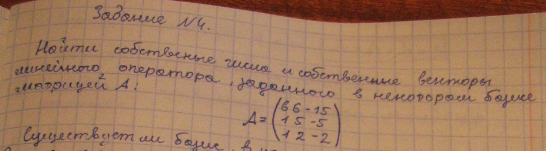 Задание №4.
Найти собственные числа и собственные векторы
линейного оператора, заданного в некотором базисе
матрицей A:
A=(6 6 -15
1 5 -5
1 2 -2)
Существует ли базис, в